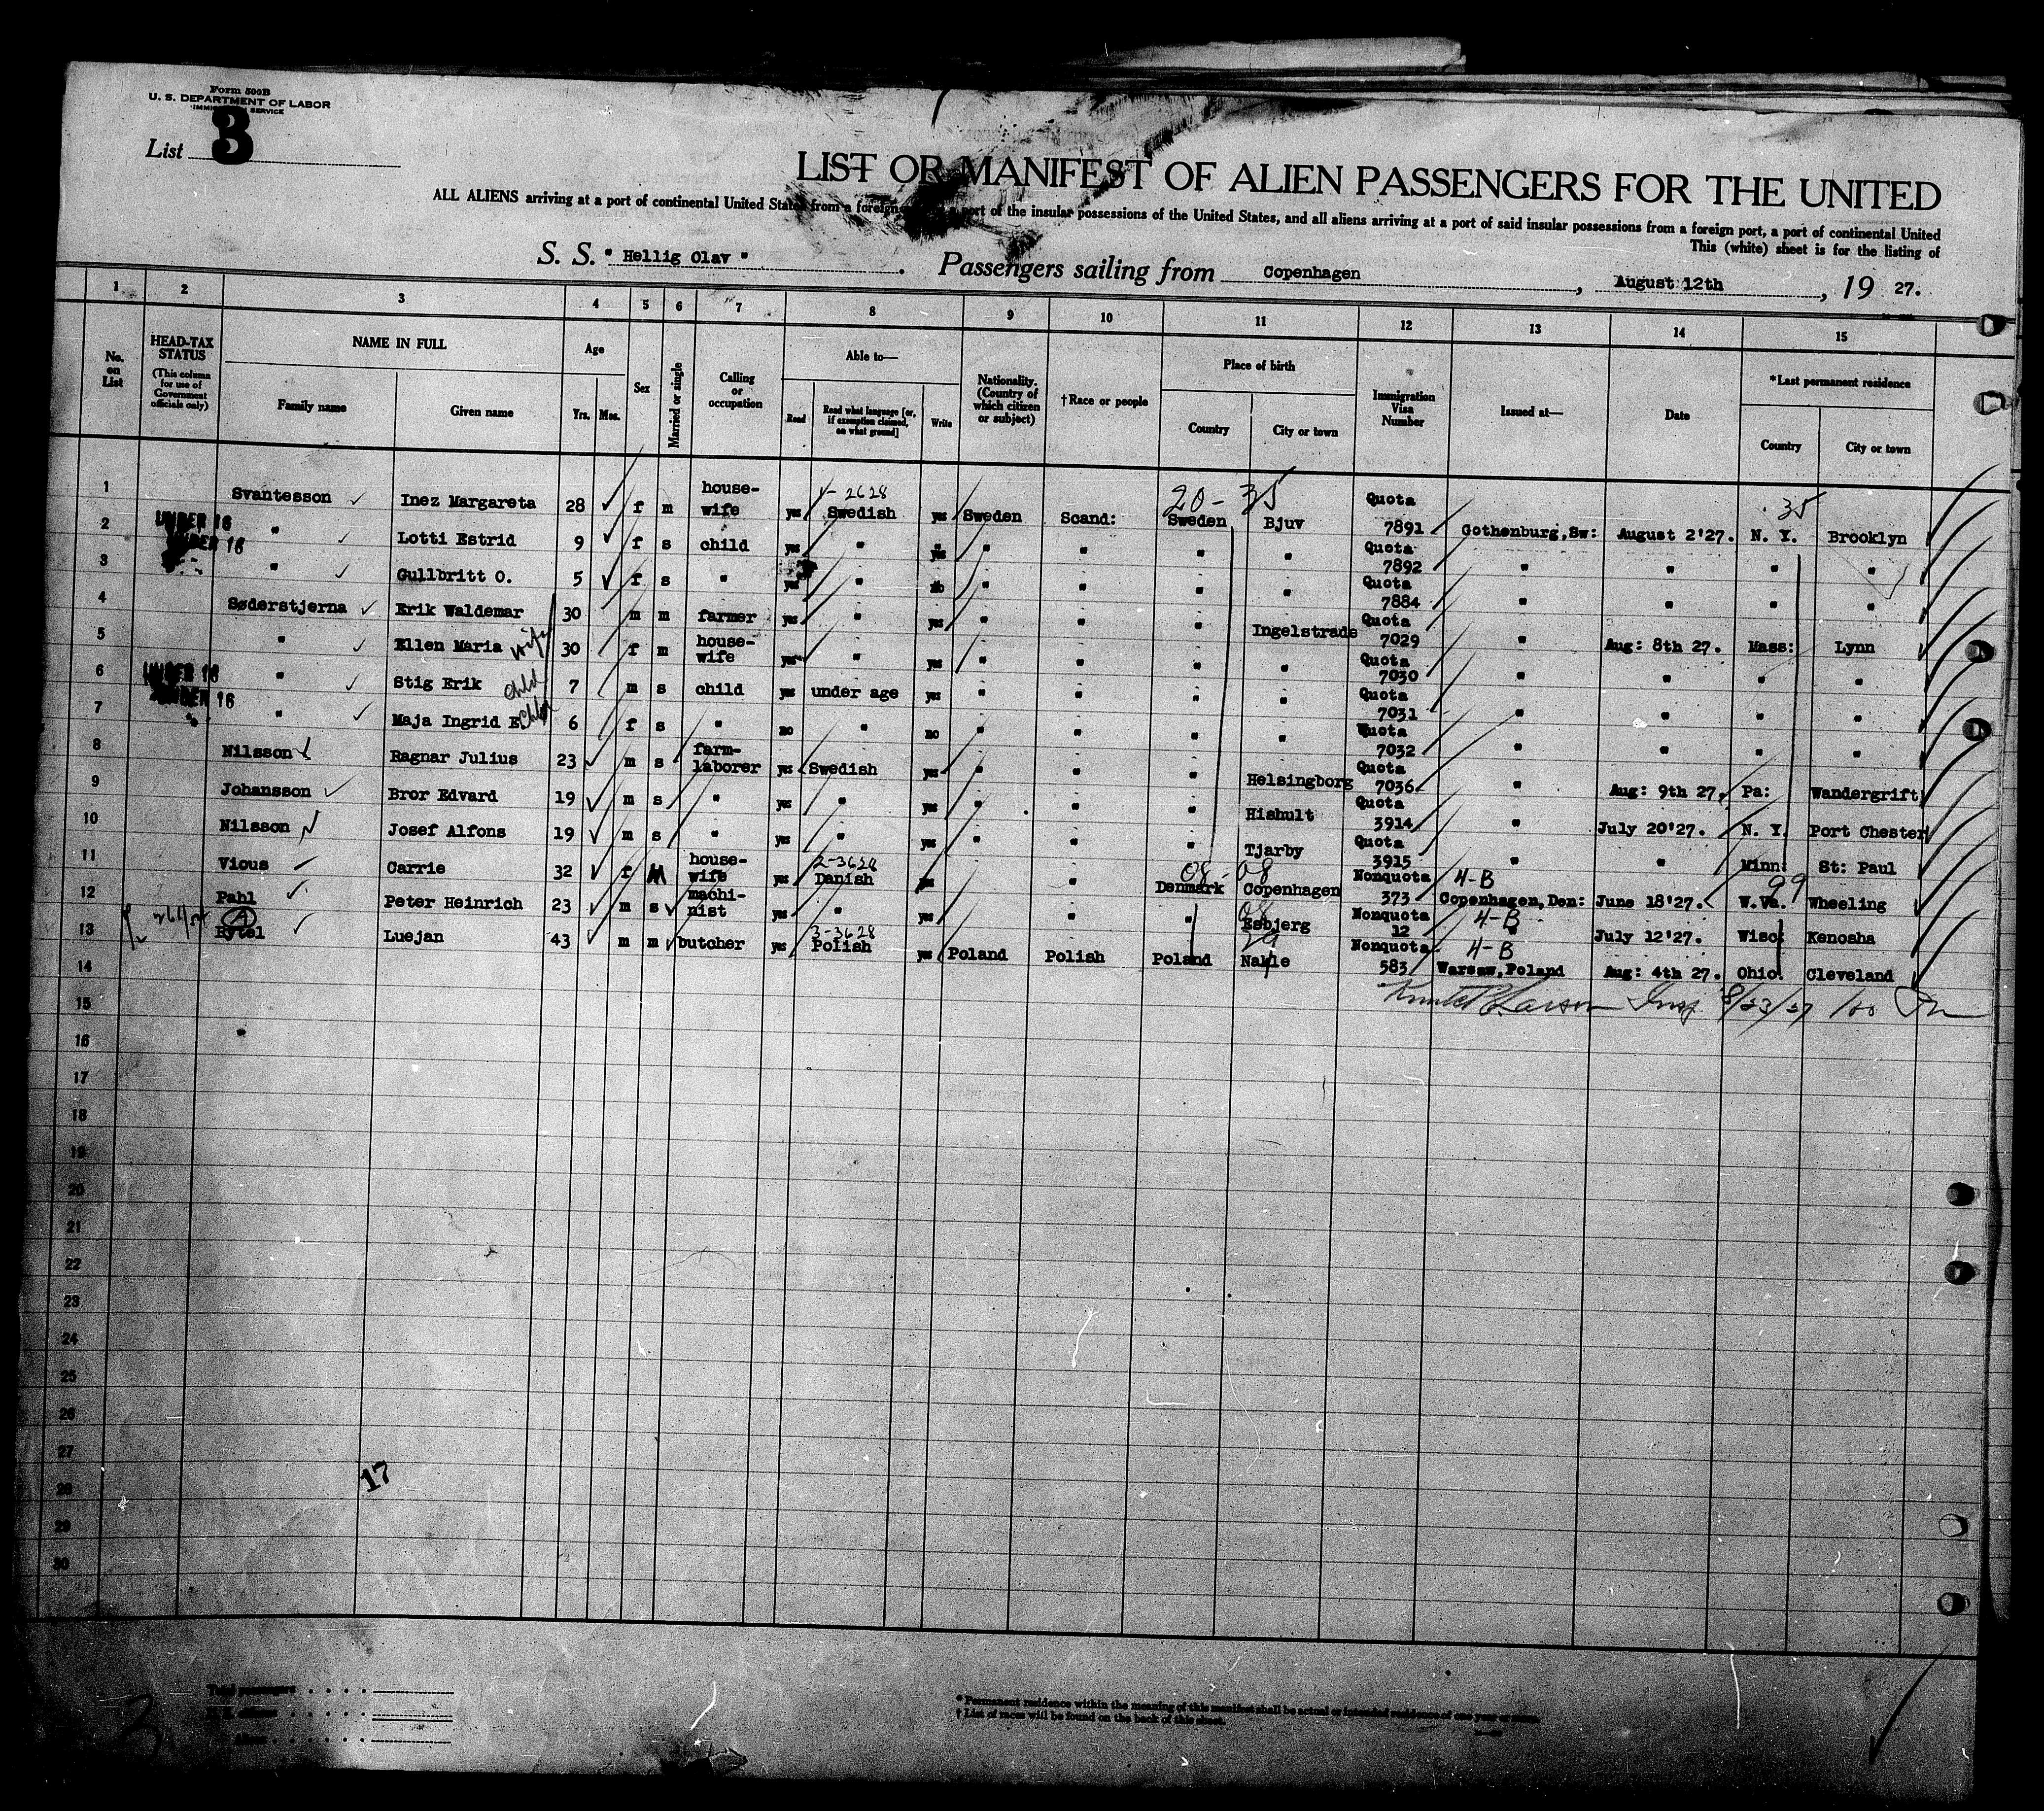 Form 500B
U. S. DEPARTMENT OF LABOR
IMMIGRATION SERVICE
List 3
LIST OR MANIFEST OF ALIEN PASSENGERS FOR THE UNITED
ALL ALIENS arriving at a port of continental United States from a foreign port of the insular possessions of the United States, and all aliens arriving at a port of said insular possessions from a foreign port, a port of continental United
This (white) sheet is for the listing of
S. S. " Hellig Olav " . Passengers sailing from Copenhagen , August 12th , 19 27.
1 2 3 4 5 6 7 8 9 10 11 12 13 14 15
No. on List
HEAD-TAX STATUS (This column for use of Government officials only)
NAME IN FULL Family name Given name
Age Yrs. Mos.
Sex
Married or single
Calling or occupation
Able to— Read Read what language [or, if exemption claimed, on what ground] Write
Nationality. (Country of which citizen or subject)
†Race or people
Place of birth Country City or town
Immigration Visa Number
Issued at—
Date
*Last permanent residence Country City or town
1 Svantesson Inez Margareta 28 f m house-wife yes 1-2628 Swedish yes Sweden Scand: 20-35 Sweden Bjuv Quota 7891 Gothenburg,Sw: August 2'27. 35 N. Y. Brooklyn
2 UNDER 16 " Lotti Estrid 9 f s child yes " yes " " " " Quota 7892 " " " "
3 UNDER 16 " Gullbritt O. 5 f s " yes " no " " " " Quota 7884 " " " "
4 Søderstjerna Erik Waldemar 30 m m farmer yes " yes " " " Ingelstrade Quota 7029 " Aug: 8th 27. Mass: Lynn
5 " Ellen Maria wife 30 f m house-wife yes " yes " " " " Quota 7030 " " " "
6 UNDER 16 " Stig Erik child 7 m s child yes under age yes " " " " Quota 7031 " " " "
7 UNDER 16 " Maja Ingrid E. child 6 f s " no " no " " " " Quota 7032 " " " "
8 Nilsson Ragnar Julius 23 m s farm-laborer yes Swedish yes " " " Helsingborg Quota 7036 " Aug: 9th 27. Pa: Wandergrift
9 Johansson Bror Edvard 19 m s " yes " yes " " " Hishult Quota 3914 " July 20'27. N. Y. Port Chester
10 Nilsson Josef Alfons 19 m s " yes " yes " " " Tjarby Quota 3915 " " Minn: St: Paul
11 Vious Carrie 32 f M house-wife yes 2-3628 Danish yes " 08-08 Denmark Copenhagen Nonquota 373 4-B Copenhagen,Den: June 18'27. 99 W.Va. Wheeling
12 Pahl Peter Heinrich 23 m s machi-nist yes " yes " " 08 Esbjerg Nonquota 12 4-B " July 12'27. Wisc: Kenosha
13 A Rytel Luejan 43 m m butcher yes 3-3628 Polish yes Poland Polish Poland 29 Nakle Nonquota 583 4-B Warsaw,Poland Aug: 4th 27. Ohio. Cleveland
14
15 Larson Insp 8/23/27
16
17
18
19
20
21
22
23
24
25
26
27
28
29
30
17
Total passengers
U. S. citizens
Aliens
* Permanent residence within the meaning of this manifest shall be actual or intended residence of one year or more.
† List of races will be found on the back of this sheet.
3